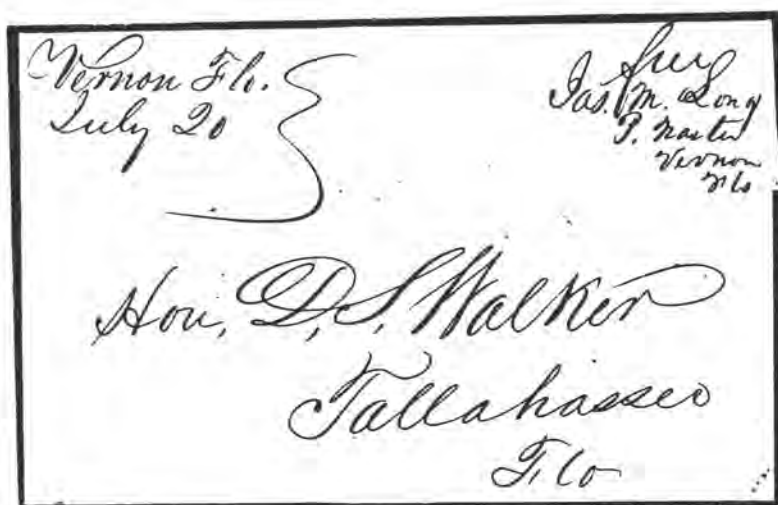 Vernon Flo.
July 20
free
Jas. M. Long
P. Master
Vernon
Flo
Hon. D. S. Walker
Tallahassee
Flo